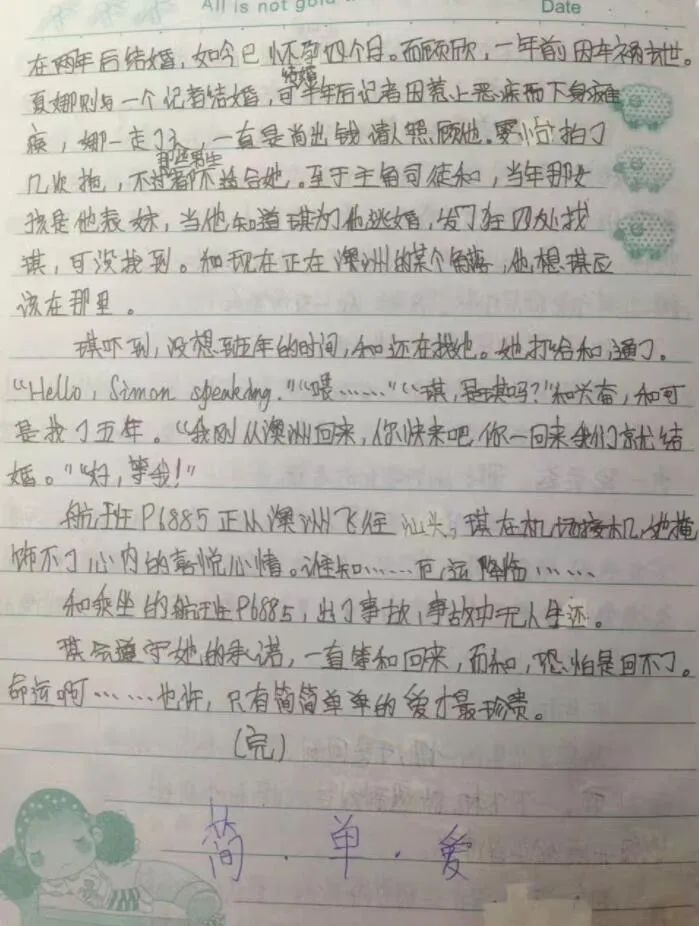 All is not gold
Date
在两年后结婚，如今已怀孕四个月。而顾欣，一年前因车祸去世。
结婚
夏娜则与一个记者结婚，可半年后记者因惹上恶疾而下身瘫
痪，娜一走了之，一直是尚出钱请人照顾他。雯小怡拍了
那些男生
几次拖，不过都不适合她。至于主角司徒和，当年那女
孩是他表妹，当他知道琪为了他逃婚，发了狂四处找
琪，可没找到。和现在正在澳洲的某个角落，他想琪应
该在那里。
琪吓到，没想到五年的时间，和还在找她。她打给和，通了。
“Hello，Simon speaking.”“喂……”“琪，是琪吗？”和兴奋，和可
是找了五年。“我刚从澳洲回来，你快来吧，你一回来我们就结
婚。”“好，等我！”
航班P6885正从澳洲飞往汕头，琪在机场接机，她掩
饰不了心内的喜悦心情。谁知……厄运降临……
和乘坐的航班P6885，出了事故，事故中无人生还。
琪会遵守她的承诺，一直等和回来，而和，恐怕是回不了。
命运啊……也许，只有简简单单的爱才最珍贵。
(完)
简·单·爱